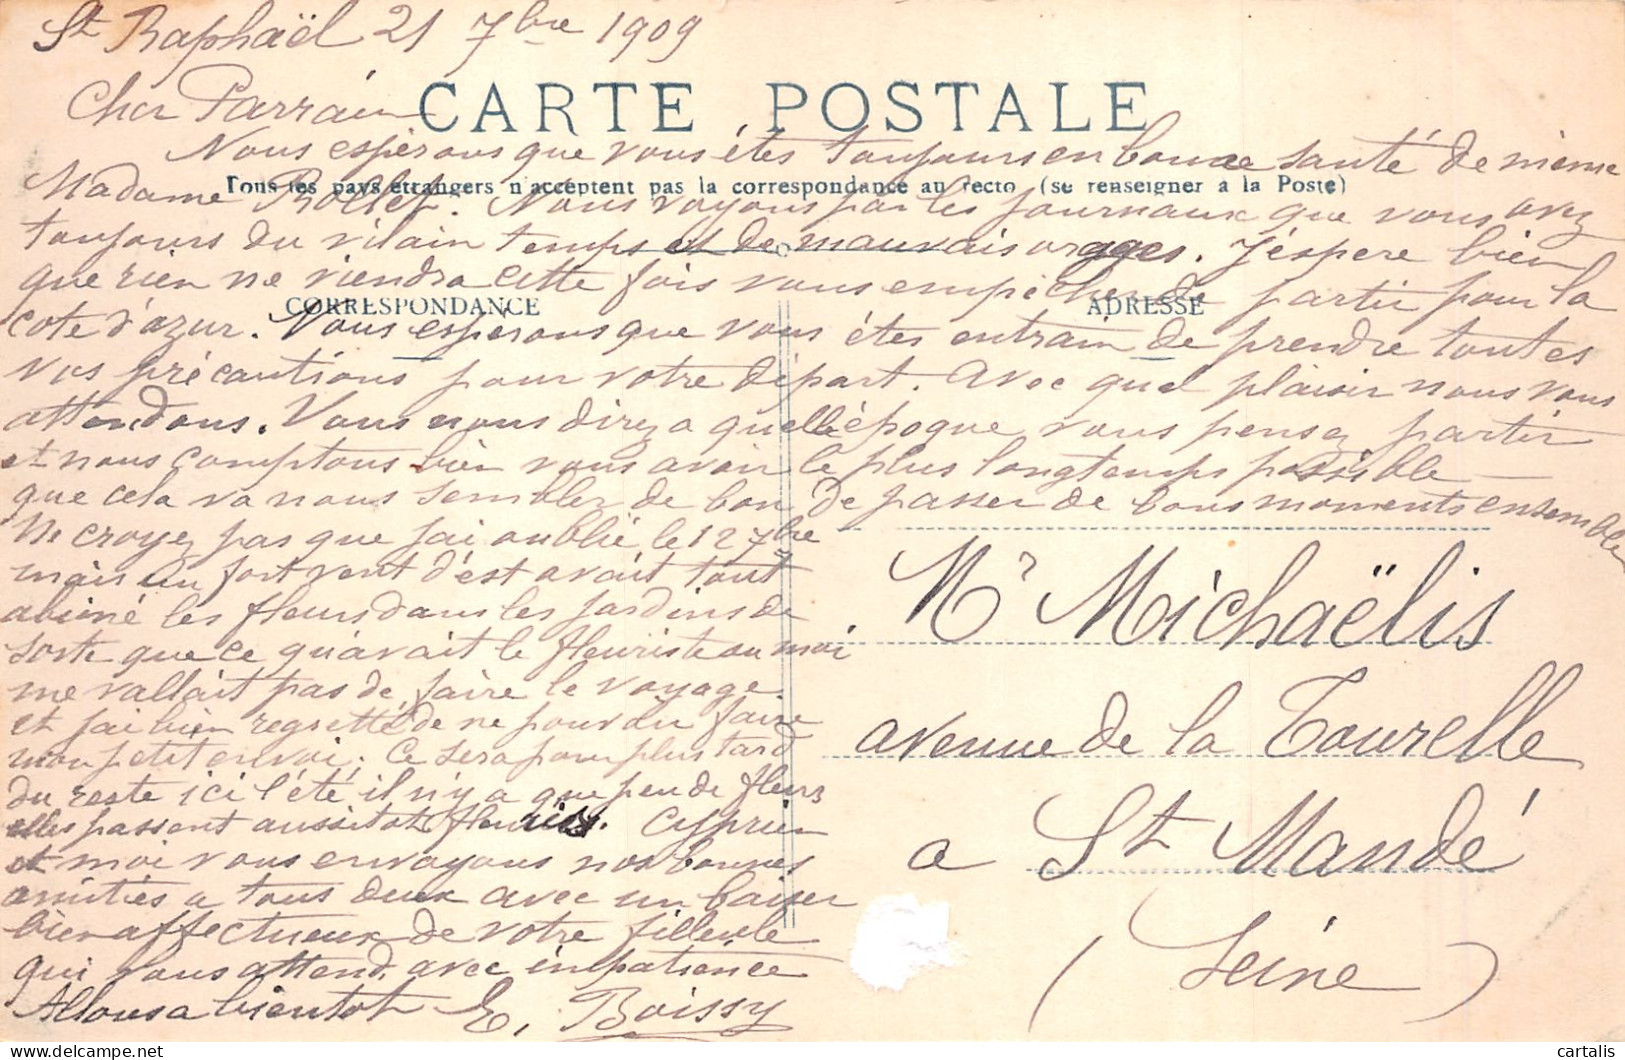 St Raphaël 21 7bre 1909
Cher Parrain
CARTE POSTALE
Nous espérons que vous étes toujours en bonne santé de même
Tous les pays étrangers n'acceptent pas la correspondance au recto (se renseigner à la Poste)
Madame Rollet. Nous voyons par les journaux que vous avez
toujours du vilain temps et de mauvais orages. J'éspere bien
que rien ne viendra cette fois vous empécher de partir pour la
CORRESPONDANCE
ADRESSE
cote d'azur. Nous esperons que vous étes entrain de prendre toutes
vos précautions pour votre départ. Avec quel plaisir nous vous
attendons. Vous nous direz a quelle époque vous pensez partir
et nous comptons bien vous avoir le plus longtemps possible
que cela va nous sembler de bon de passer de bons moments ensemble
Ne croyez pas que j'ai oublié le 12 7bre
mais un fort vent d'est avait tout
abimé les fleurs dans les jardins de
sorte que ce qu'avait le fleuriste au moi
me vallait pas de faire le voyage
et j'ai bien regretté de ne pouvoir faire
mon petit envoi. Ce sera pour plus tard
du reste ici l'été il n'y a que peu de fleurs
elles passent aussitot fleuries. Cyprien
et moi vous envoyons nos bonnes
amitiés a tous deux avec un baiser
bien affectueux de votre filleule
qui vous attend avec impatience
Allons a bientot E. Boissy
Mr Michaëlis
avenue de la Tourelle
a St Mandé
(Seine)
cartalis